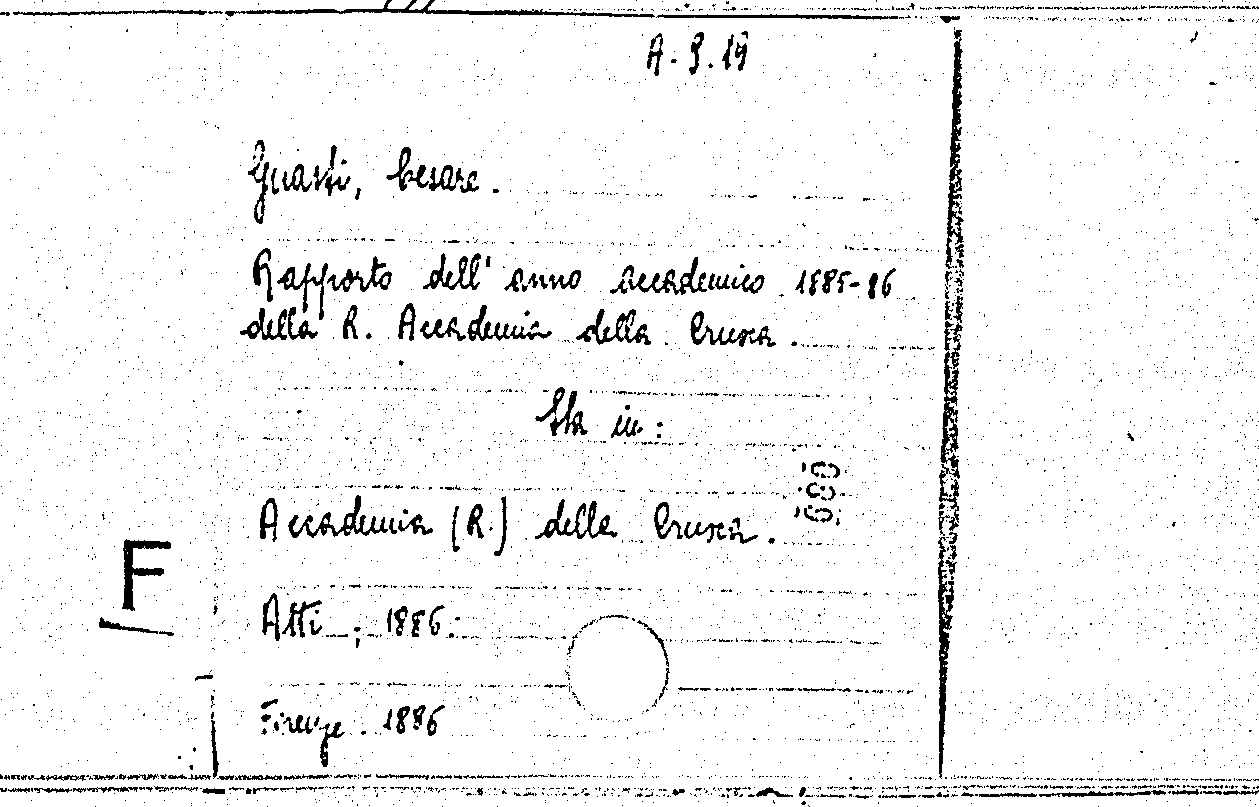 A. 9. 19
Guasti, Cesare.
Rapporto dell' anno accademico 1885-86
della R. Accademia della Crusca.
Sta in:
680
Accademia (R.) della Crusca.
F
Atti; 1886.
Firenze. 1886